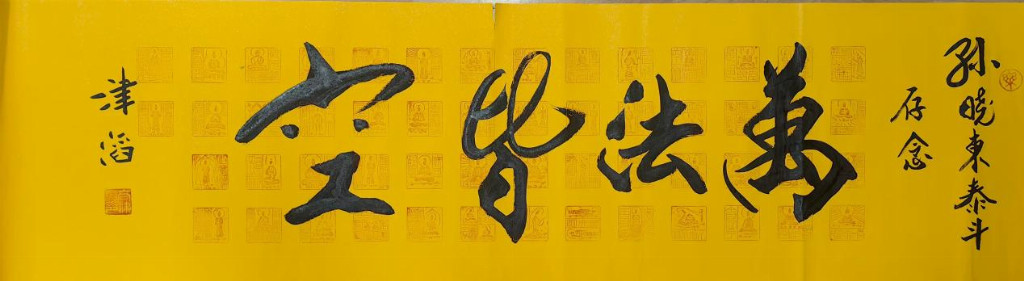 孙晓東泰斗
存念
萬法皆空
津滔